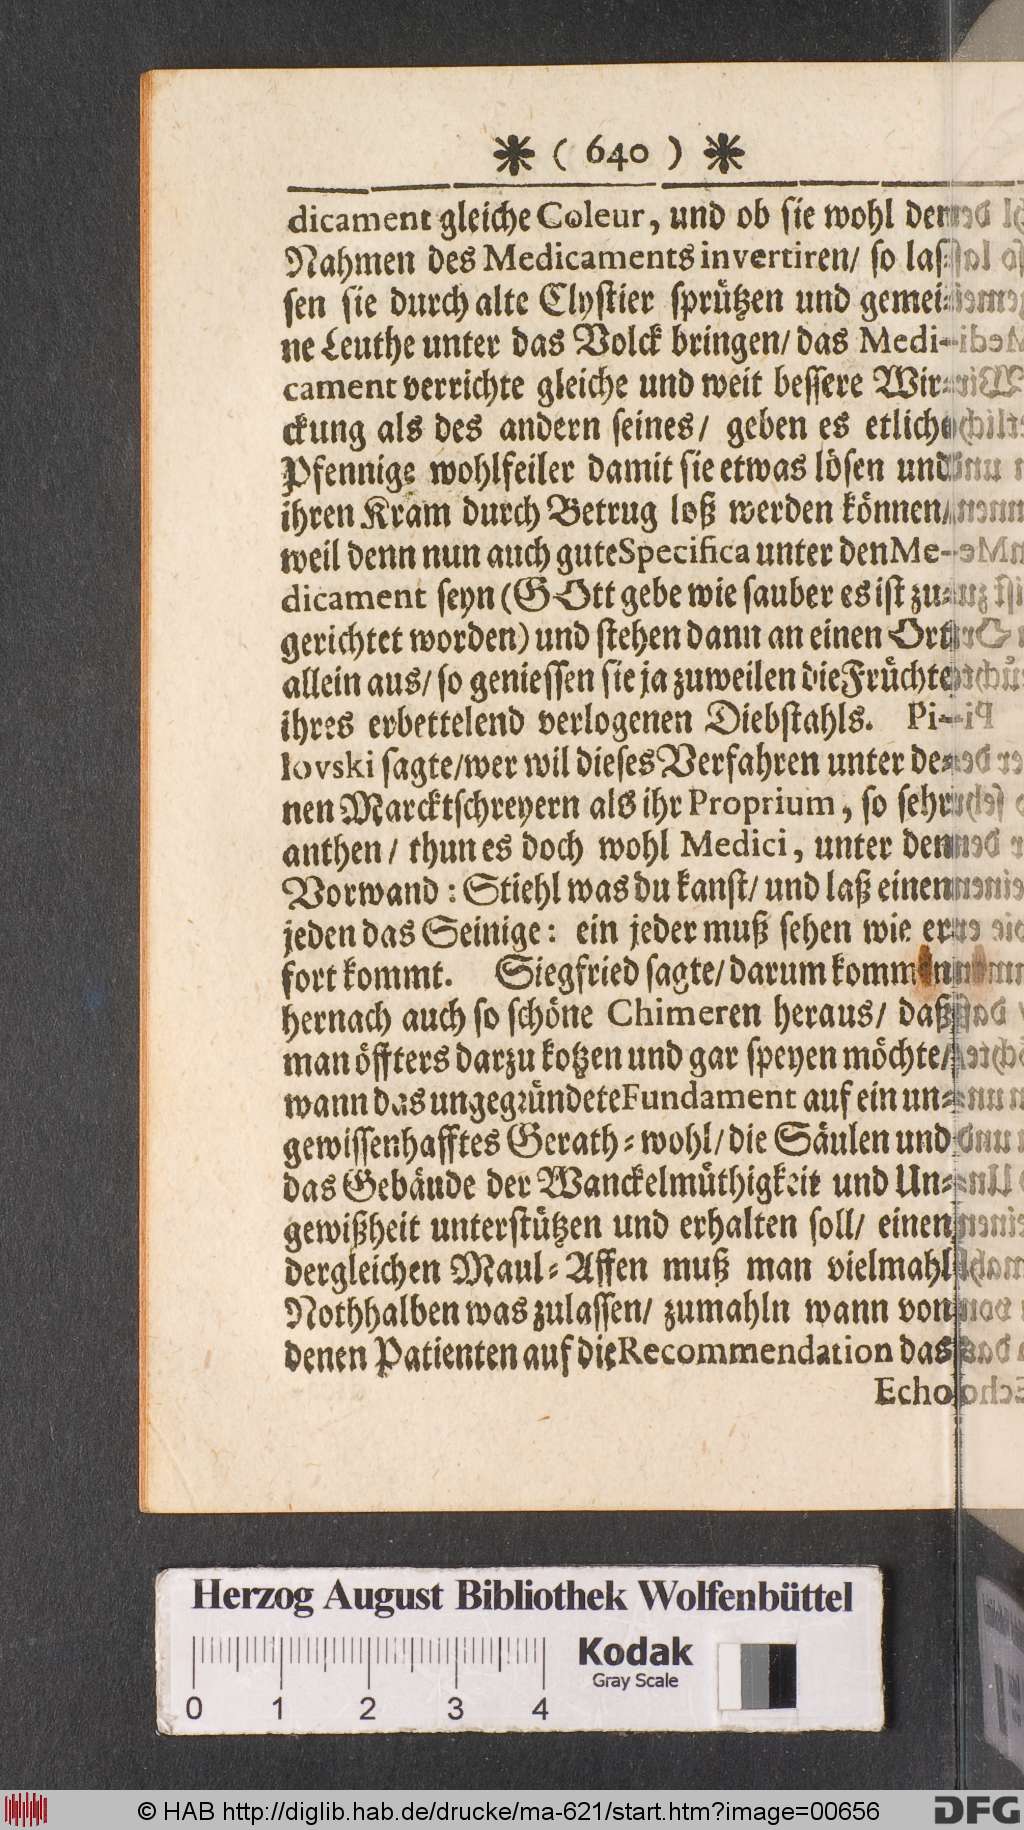 * ( 640 ) *
dicament gleiche Coleur, und ob sie wohl den
Nahmen des Medicaments invertiren/ so las-
sen sie durch alte Clystier sprützen und gemei-
ne Leuthe unter das Volck bringen/ das Medi-
cament verrichte gleiche und weit bessere Wir-
ckung als des andern seines/ geben es etliche
Pfennige wohlfeiler damit sie etwas lösen und
ihren Kram durch Betrug loß werden können/
weil denn nun auch gute Specifica unter den Me-
dicament seyn (GOtt gebe wie sauber es ist zu-
gerichtet worden) und stehen dann an einen Ort
allein aus/ so geniessen sie ja zuweilen die Früchte
ihres erbettelend verlogenen Diebstahls. Pi-
lovski sagte/wer wil dieses Verfahren unter de-
nen Marcktschreyern als ihr Proprium, so sehr
anthen/ thun es doch wohl Medici, unter den
Vorwand: Stiehl was du kanst/ und laß einen
jeden das Seinige: ein jeder muß sehen wie er
fort kommt. Siegfried sagte/ darum kommen
hernach auch so schöne Chimeren heraus/ daß
man öffters darzu kotzen und gar speyen möchte/
wann das ungegründete Fundament auf ein un-
gewissenhafftes Gerath-wohl/ die Säulen und
das Gebäude der Wanckelmüthigkeit und Un-
gewißheit unterstützen und erhalten soll/ einen
dergleichen Maul-Affen muß man vielmahl
Nothhalben was zulassen/ zumahln wann von
denen Patienten auf die Recommendation das
Echo
Herzog August Bibliothek Wolfenbüttel
Kodak
Gray Scale
0 1 2 3 4
© HAB http://diglib.hab.de/drucke/ma-621/start.htm?image=00656
DFG